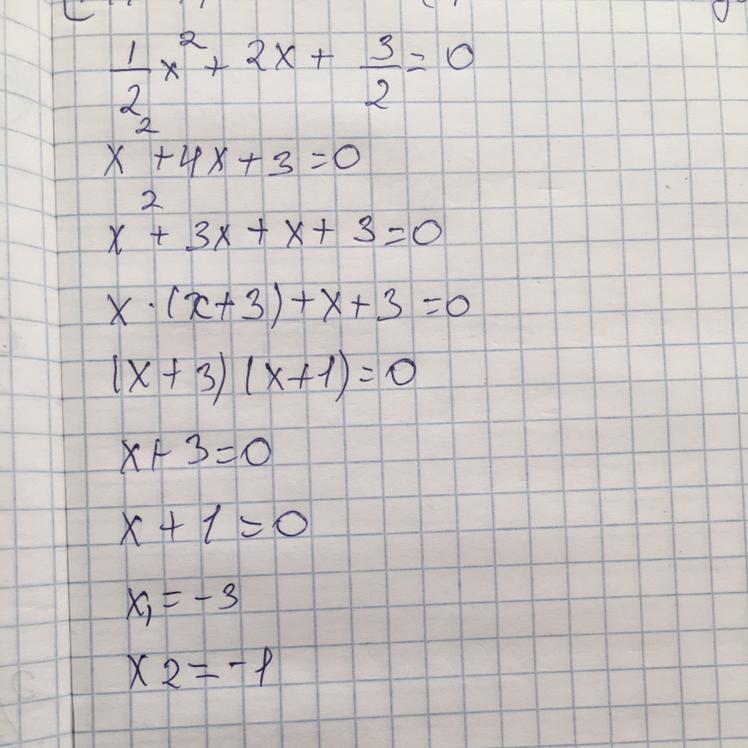 1/2 x² + 2x + 3/2 = 0
x² + 4x + 3 = 0
x² + 3x + x + 3 = 0
x · (x + 3) + x + 3 = 0
(x + 3) (x + 1) = 0
x + 3 = 0
x + 1 = 0
x₁ = -3
x2 = -1